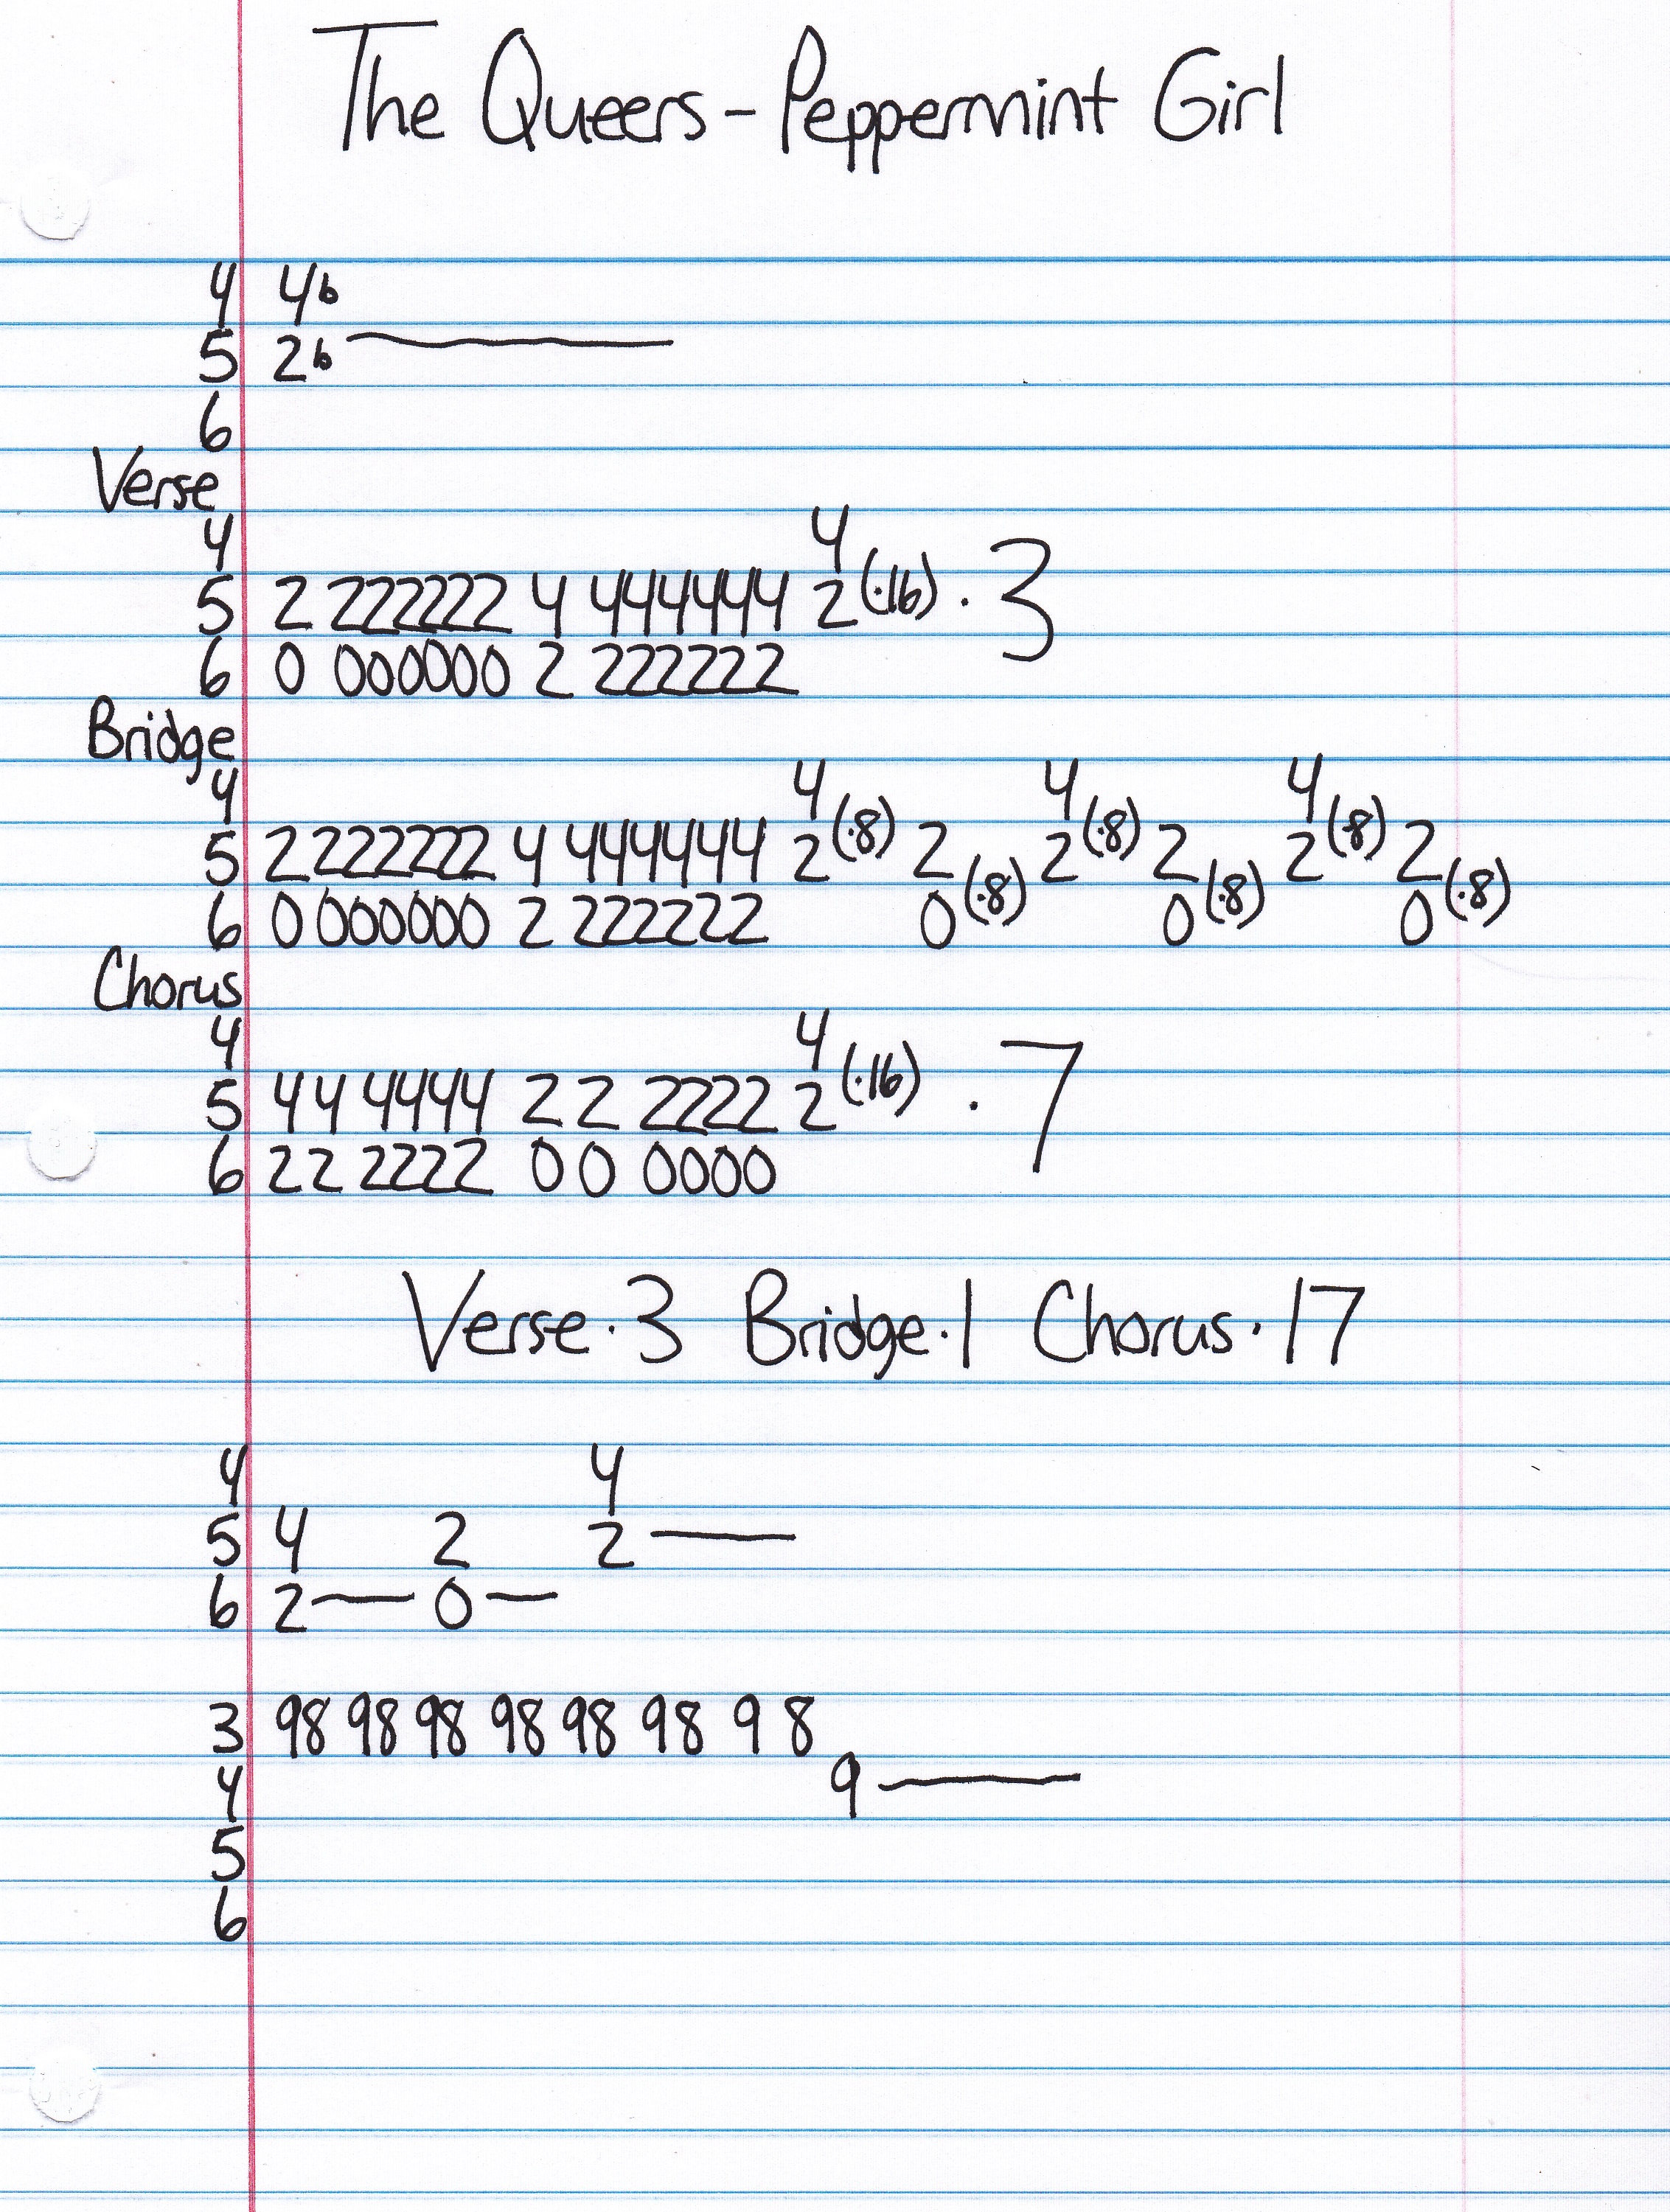 The Queers - Peppermint Girl
4 4b
5 2b
6
Verse
4 4
5 2 222222 4 444444 2 (·16) · 3
6 0 000000 2 222222
Bridge
4 4 4 4
5 2 222222 4 444444 2 (·8) 2 2 (·8) 2 2 (·8) 2
6 0 000000 2 222222 0 (·8) 0 (·8) 0 (·8)
Chorus
4 4
5 44 4444 22 2222 2 (·16) · 7
6 22 2222 00 0000
Verse·3 Bridge·1 Chorus·17
4 4
5 4 2 2
6 2 0
3 98 98 98 98 98 98 9 8
4 9
5
6